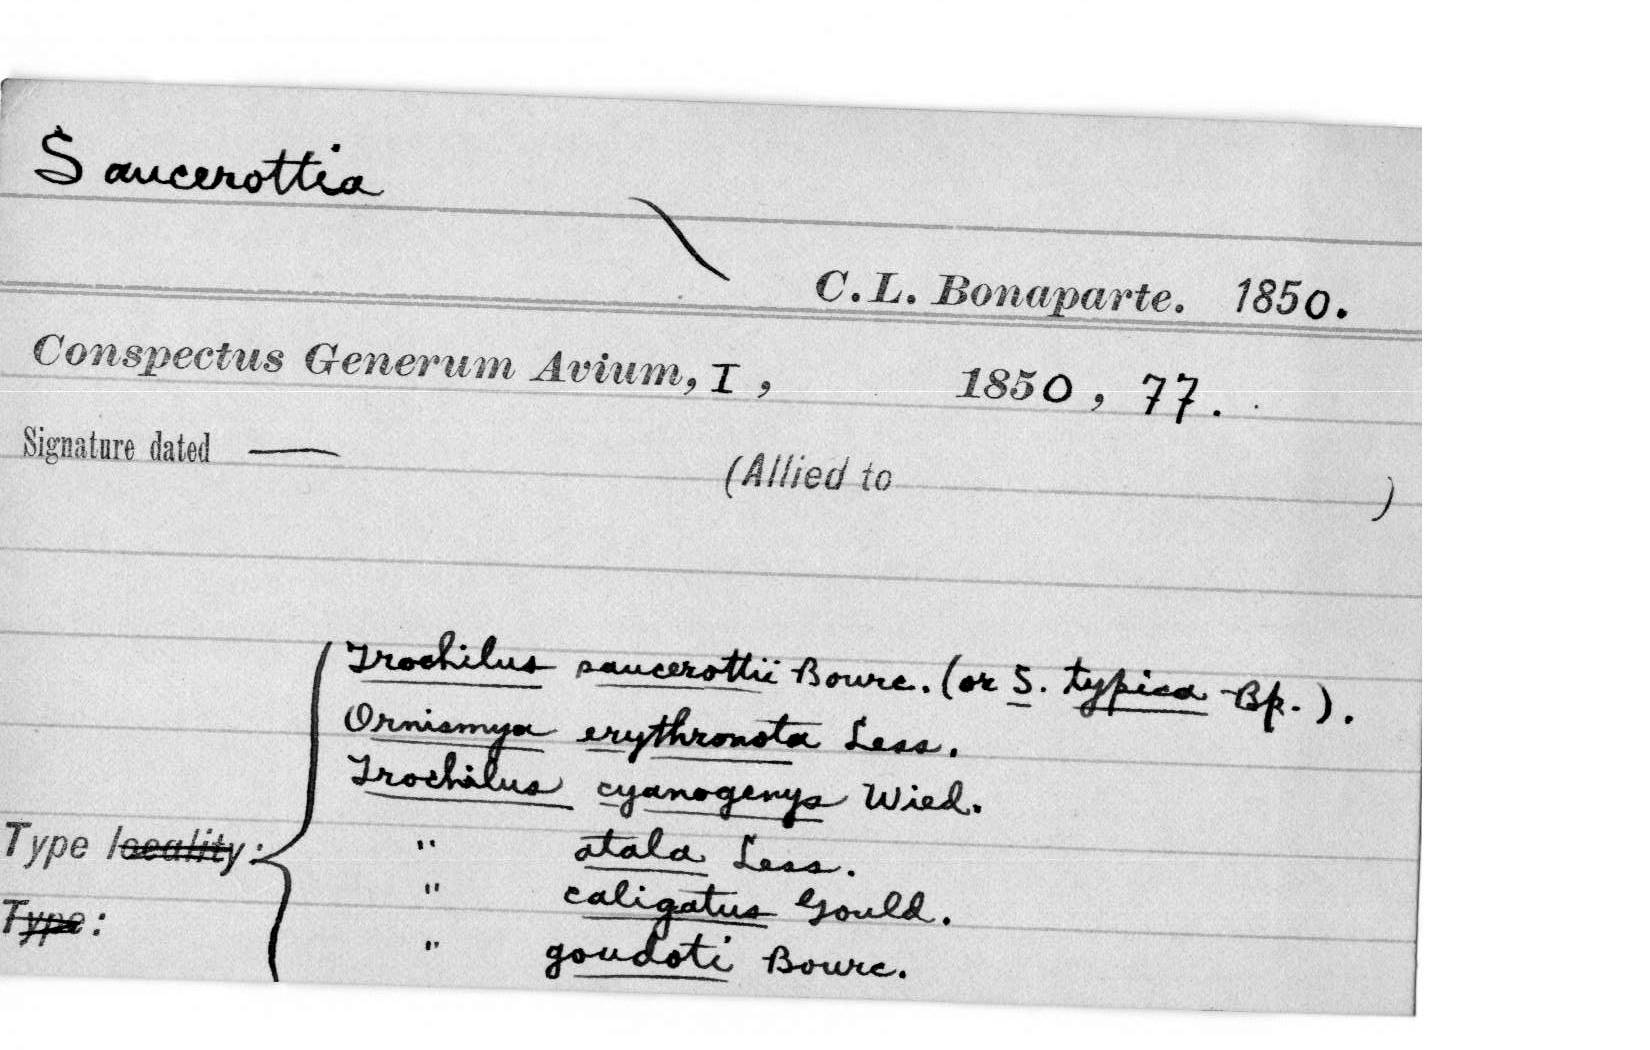 Saucerottia
C. L. Bonaparte. 1850.
Conspectus Generum Avium, I, 1850, 77.
Signature dated —
(Allied to )
Trochilus saucerottii Bourc. (or S. typica Bp.).
Ornismya erythronota Less.
Trochilus cyanogenys Wied.
Type locality: " atala Less.
" caligatus Gould.
Type:
" goudoti Bourc.